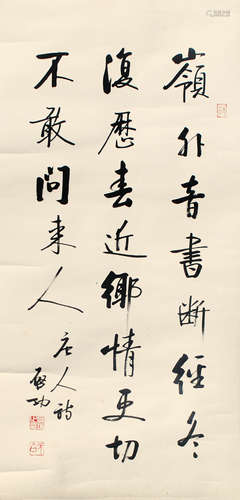 嶺外音書斷經冬
復歷春近鄉情更切
不敢問来人
唐人詩
啓功